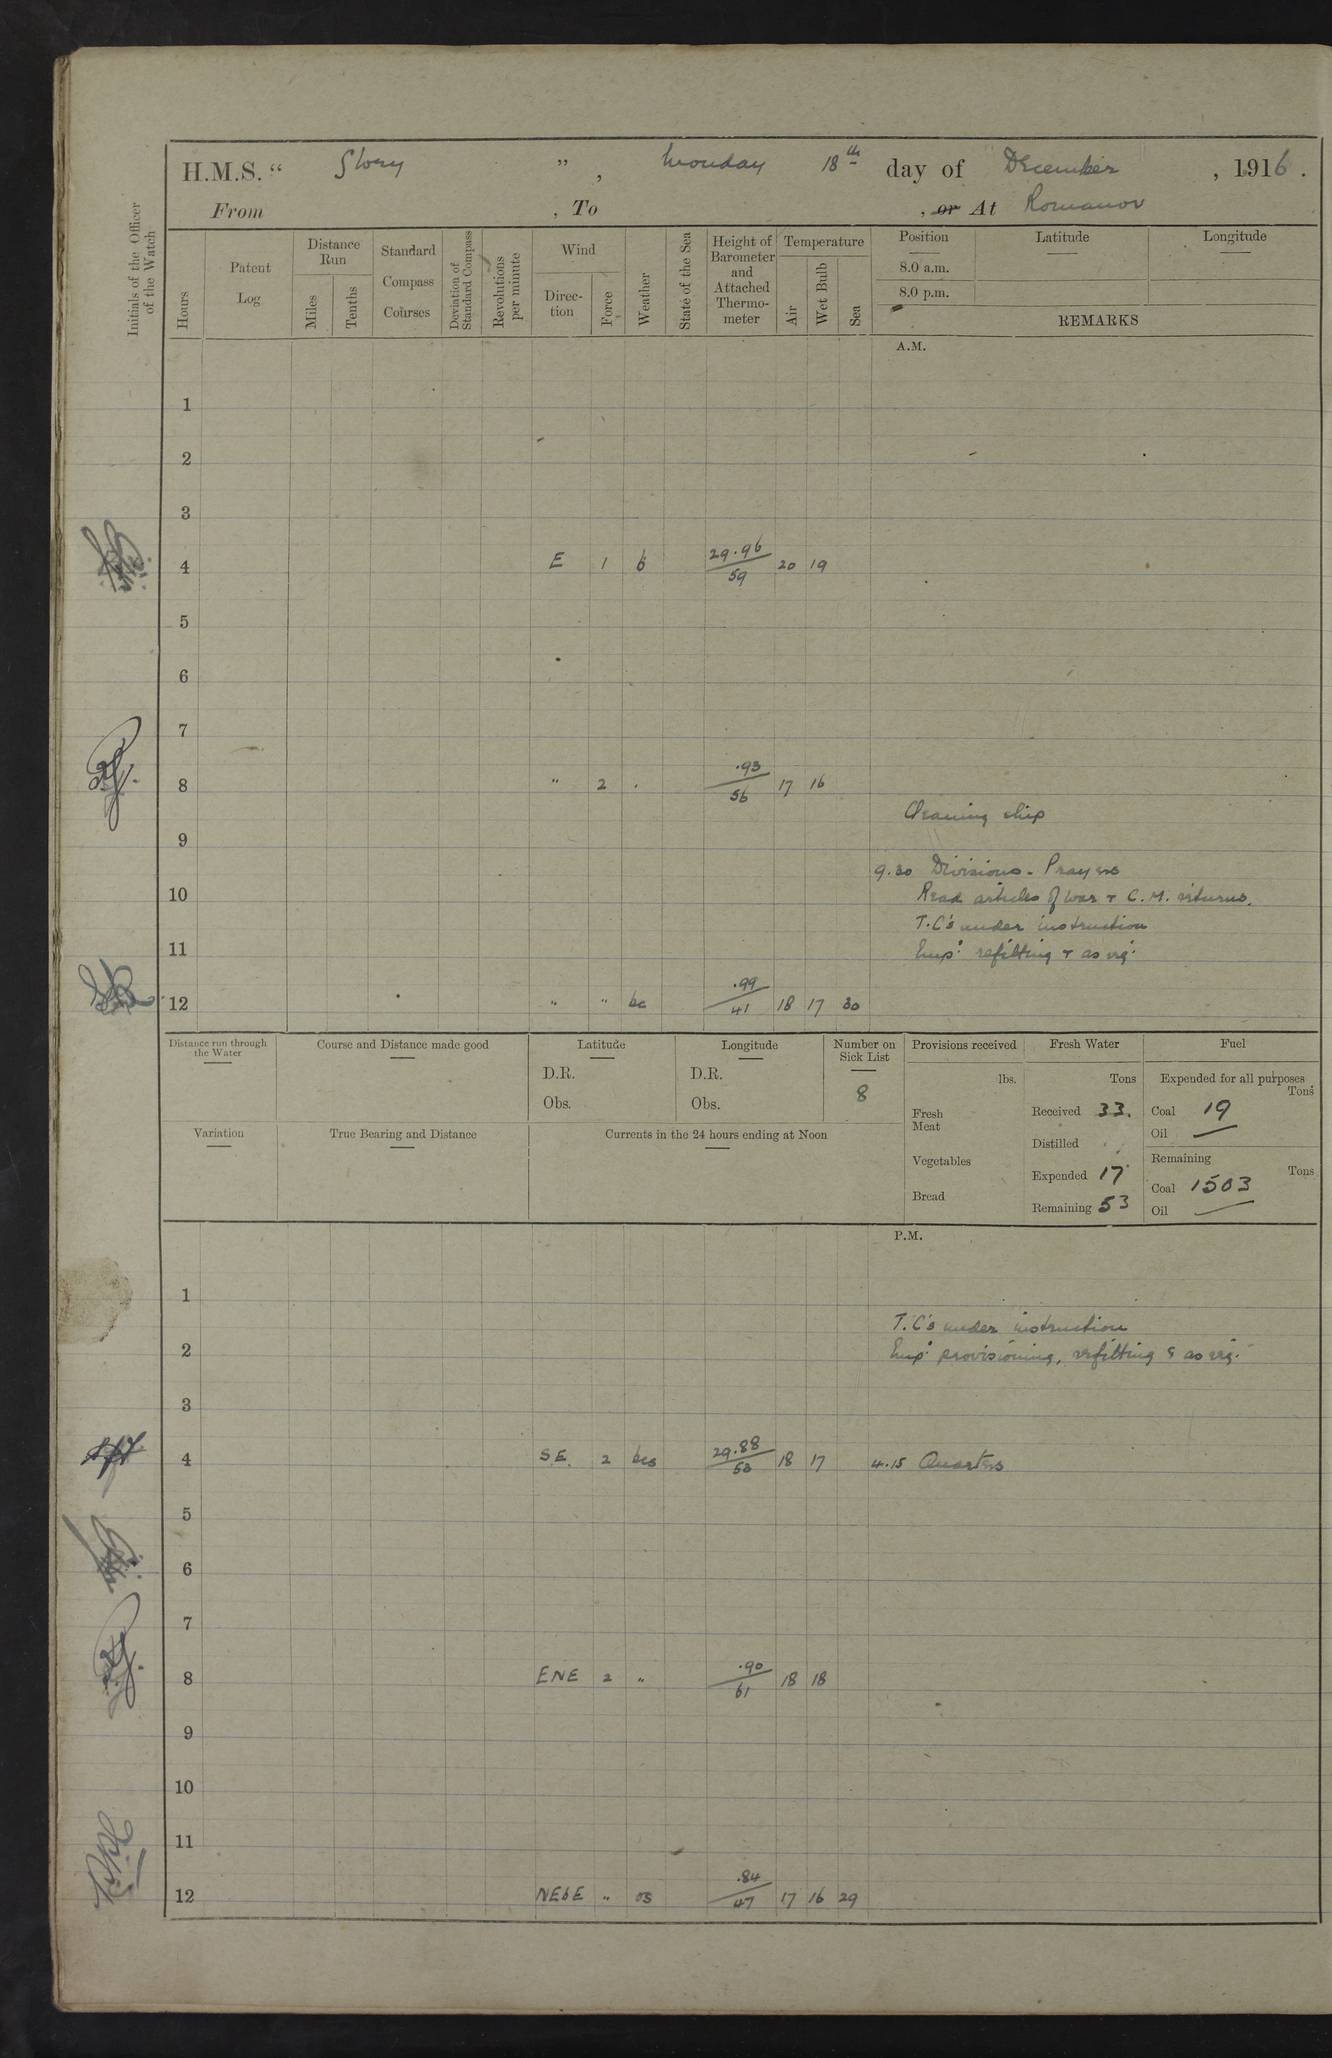 H.M.S. “ Glory ” , Monday 18th day of December , 1916 .
From , To , or At Romanov
Initials of the Officer of the Watch
Hours
Patent Log
Distance Run
Miles
Tenths
Standard Compass Courses
Deviation of Standard Compass
Revolutions per minute
Wind
Direc-tion
Force
Weather
State of the Sea
Height of Barometer and Attached Thermo-meter
Temperature
Air
Wet Bulb
Sea
Position
8.0 a.m.
8.0 p.m.
Latitude
Longitude
REMARKS
A.M.
1
2
3
4 E 1 b 29.96/59 20 19
5
6
7
8 " 2 . .93/56 17 16
Cleaning ship
9
9.30 Divisions - Prayers
10 Read articles of war + C.M. returns.
T.C's under instruction
11 Emp: refitting + as req:
12 " " bc .99/41 18 17 30
Distance run through the Water
Course and Distance made good
Latitude
D.R.
Obs.
Longitude
D.R.
Obs.
Number on Sick List
8
Provisions received
lbs.
Fresh Meat
Vegetables
Bread
Fresh Water
Tons
Received 33.
Distilled
Expended 17
Remaining 53
Fuel
Expended for all purposes
Tons
Coal 19
Oil —
Remaining
Tons
Coal 1503
Oil —
Variation
True Bearing and Distance
Currents in the 24 hours ending at Noon
P.M.
1
T.C's under instruction
2 Emp: provisioning, refitting & as req:
3
4 SE. 2 bcs 29.88/53 18 17 4.15 Quarters
5
6
7
8 ENE 2 " .90/61 18 18
9
10
11
12 NEbE " os .84/47 17 16 29